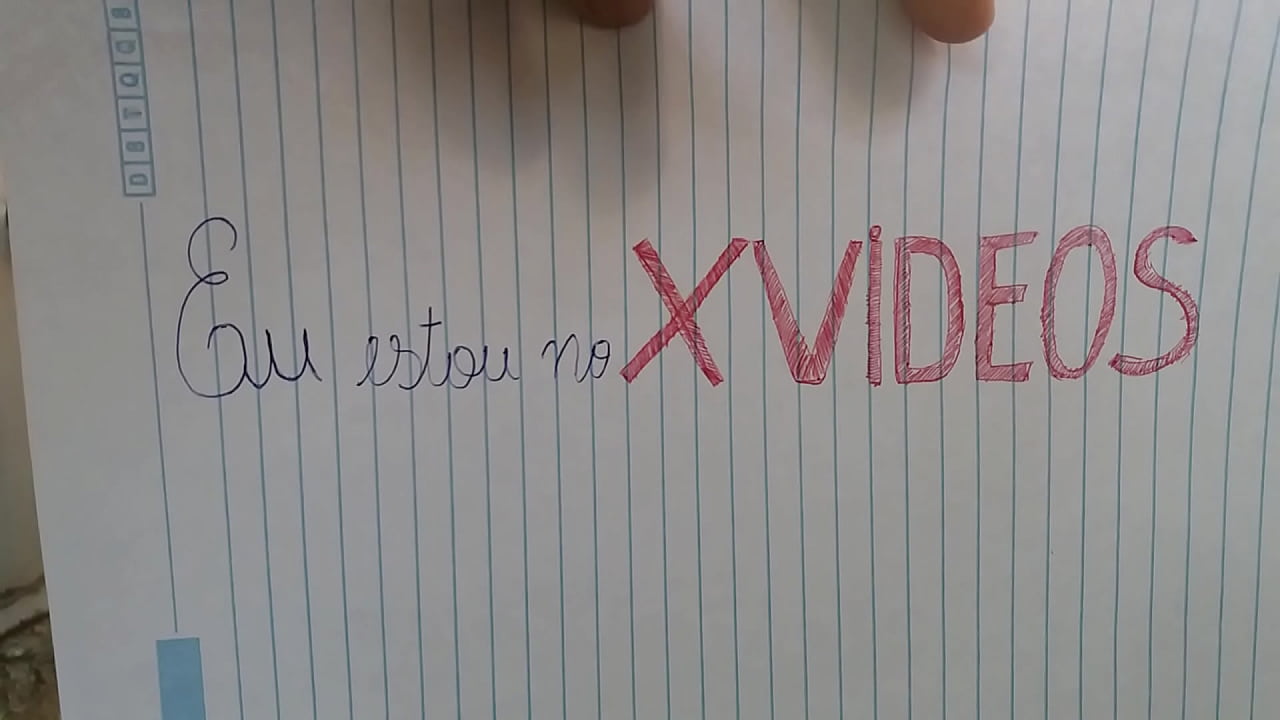 Eu estou no XViDEOS
D S T Q Q S